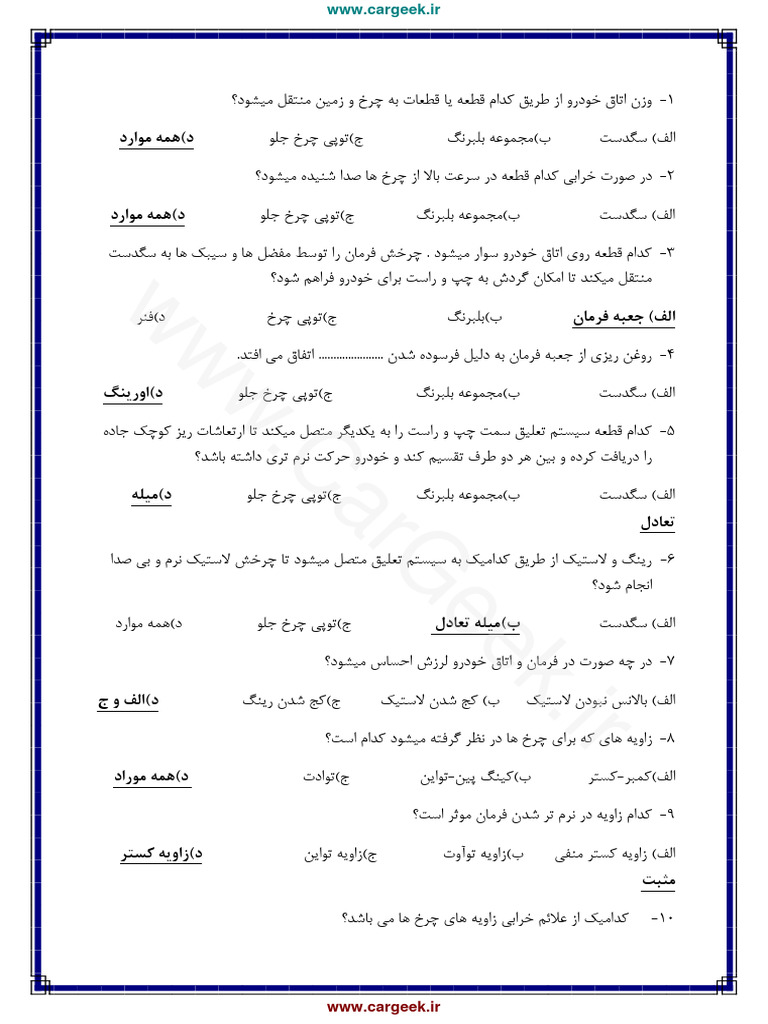 www.cargeek.ir
۱- وزن اتاق خودرو از طریق کدام قطعه یا قطعات به چرخ و زمین منتقل میشود؟
الف) سگدست ب)مجموعه بلبرنگ ج)توپی چرخ جلو د)همه موارد
۲- در صورت خرابی کدام قطعه در سرعت بالا از چرخ ها صدا شنیده میشود؟
الف) سگدست ب)مجموعه بلبرنگ ج)توپی چرخ جلو د)همه موارد
۳- کدام قطعه روی اتاق خودرو سوار میشود . چرخش فرمان را توسط مفضل ها و سیبک ها به سگدست
منتقل میکند تا امکان گردش به چپ و راست برای خودرو فراهم شود؟
الف) جعبه فرمان ب)بلبرنگ ج)توپی چرخ د)فنر
۴- روغن ریزی از جعبه فرمان به دلیل فرسوده شدن ...................... اتفاق می افتد.
الف) سگدست ب)مجموعه بلبرنگ ج)توپی چرخ جلو د)اورینگ
۵- کدام قطعه سیستم تعلیق سمت چپ و راست را به یکدیگر متصل میکند تا ارتعاشات ریز کوچک جاده
را دریافت کرده و بین هر دو طرف تقسیم کند و خودرو حرکت نرم تری داشته باشد؟
الف) سگدست ب)مجموعه بلبرنگ ج)توپی چرخ جلو د)میله
تعادل
۶- رینگ و لاستیک از طریق کدامیک به سیستم تعلیق متصل میشود تا چرخش لاستیک نرم و بی صدا
انجام شود؟
الف) سگدست ب)میله تعادل ج)توپی چرخ جلو د)همه موارد
۷- در چه صورت در فرمان و اتاق خودرو لرزش احساس میشود؟
الف) بالانس نبودن لاستیک ب) کج شدن لاستیک ج)کج شدن رینگ د)الف و ج
۸- زاویه های که برای چرخ ها در نظر گرفته میشود کدام است؟
الف)کمبر-کستر ب)کینگ پین-تواین ج)توادت د)همه موراد
۹- کدام زاویه در نرم تر شدن فرمان موثر است؟
الف) زاویه کستر منفی ب)زاویه توآوت ج)زاویه تواین د)زاویه کستر
مثبت
۱۰- کدامیک از علائم خرابی زاویه های چرخ ها می باشد؟
www.CarGeek.ir
www.cargeek.ir